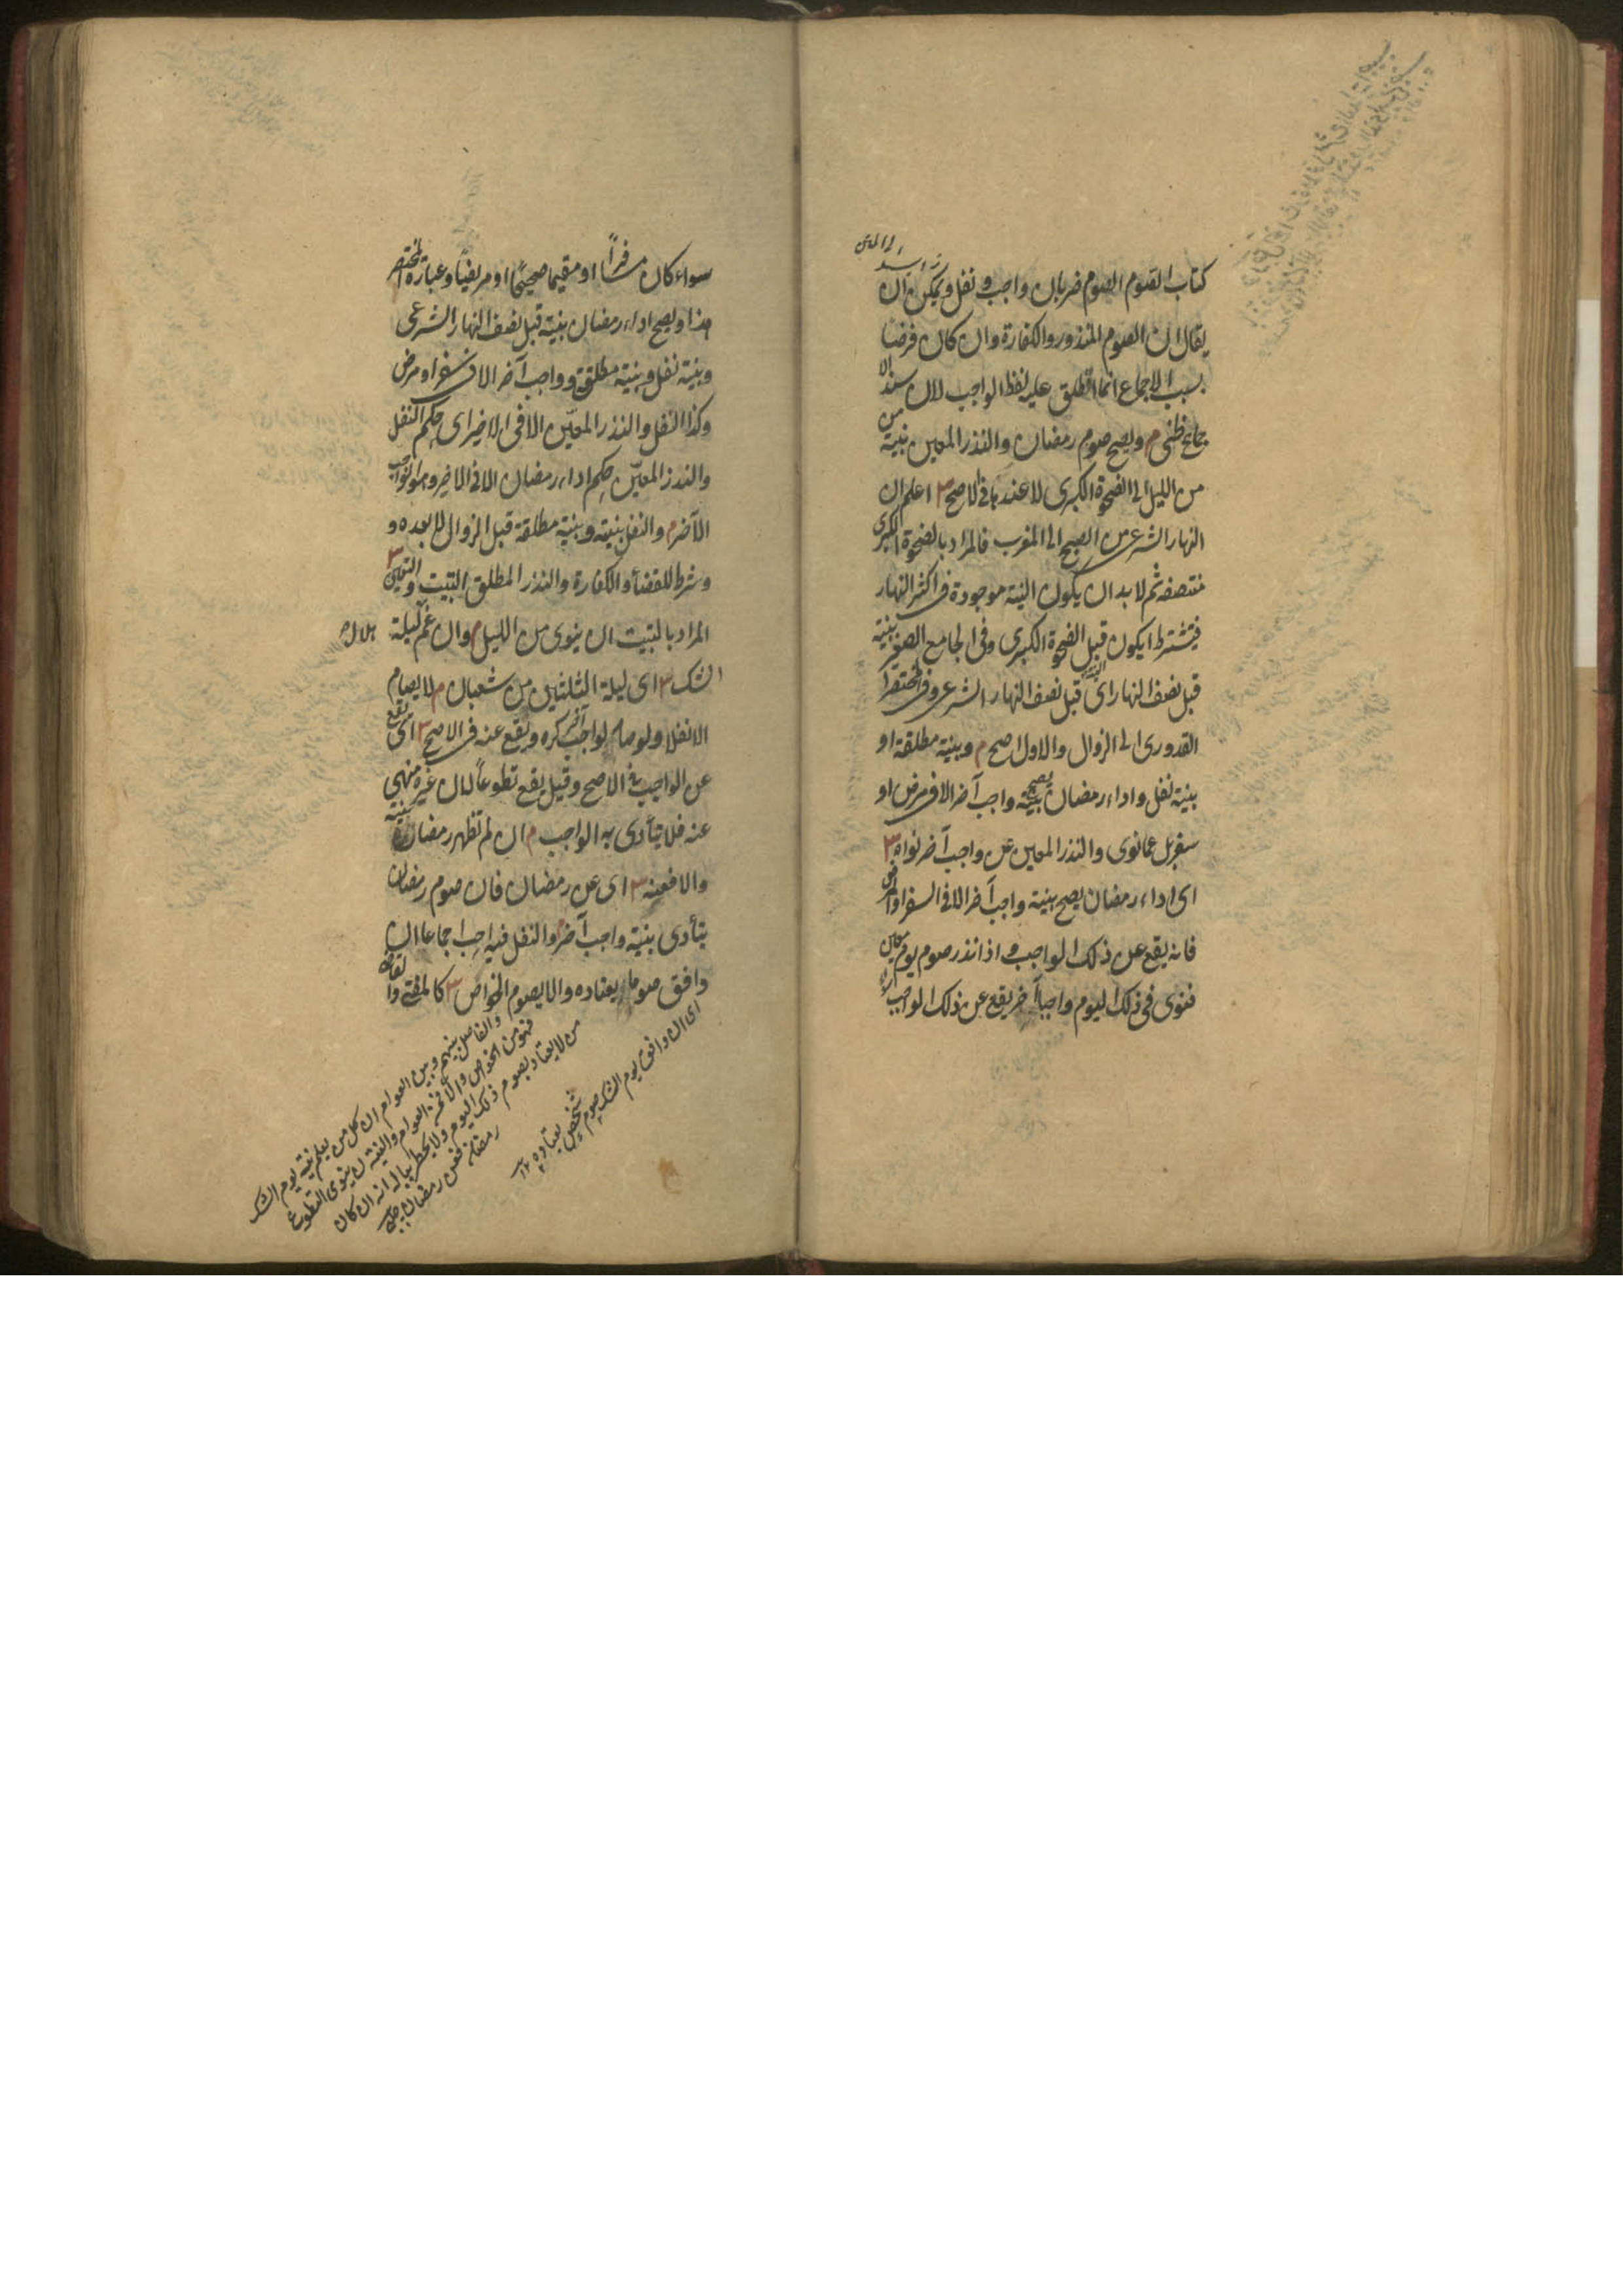 كتاب الصوم الصوم ضربان واجب ونفل ويمكن ان
يقال ان الصوم المنذور والكفارة وان كان فرضا
بسبب الاجماع انما اطلق عليه لفظ الواجب لان سند الا
جماع ظني م ويصح صوم رمضان والنذر المعين بنية من
من الليل الى الضحوة الكبرى لا عندها في الاصح ٣ اعلم ان
النهار الشرعي من الصبح الى المغرب فالمراد بالضحوة الكبرى
منتصفه ثم لا بد ان يكون النية موجودة في اكثر النهار
فيشترط ان يكون قبل الضحوة الكبرى وفي الجامع الصغير بنية
قبل نصف النهار اى قبل نصف النهار الشرعي وفي مختصر
القدورى الى الزوال والاول اصح م وبنية مطلقة او
بنية نفل واداء رمضان يصح بنية واجب آخر الا في مرض او
سفر بل عما نوى والنذر المعين عن واجب آخر نواه ٣
اى اداء رمضان يصح بنية واجب آخر الا في السفر او المرض
فانه يقع عن ذلك الواجب واذا نذر صوم يوم معين
فنوى في ذلك اليوم واجبا آخر يقع عن ذلك الواجب
سواء كان مسافرا او مقيما صحيحا او مريضا وعبارة المختصر
هذا ويصح اداء رمضان بنية قبل نصف النهار الشرعى
وبنية نفل وبنية مطلقة وواجب آخر الا في سفر او مرض
وكذا النفل والنذر المعين الا في الاخير اى حكم النفل
والنذر المعين حكم اداء رمضان الا في الاخير وهو الواجب
الآخر م والنفل بنيته وبنية مطلقة قبل الزوال لا بعده و
وشرط للقضاء والكفارة والنذر المطلق التبييت والتعيين ٣
المراد بالتبييت ان ينوى من الليل م وان غم ليلة
هلال
الشك ٣ اى ليلة الثلثين من شعبان م لا يصام
الا نفلا ولو صام لواجب آخر كره ويقع عنه في الاصح ٣ اى يقع
عن الواجب في الاصح وقيل يقع تطوعا لان غيره منهي
عنه فلا يتأدى به الواجب م ان لم تظهر رمضانيته
والا فعنه ٣ اى عن رمضان فان صوم رمضان
يتأدى بنية واجب آخر م والنفل فيه احب اجماعا ان
وافق صوما يعتاده والا يصوم الخواص ٣ كالمفتي والقاضي
اى ان وافق يوم الشك صوم
شخص يعتاده ١٢
والفاصل بينهم وبين العوام ان كل من يعلم نية يوم الشك
فهو من الخواص والا فمن العوام والنية ان ينوى التطوع
من لا يعتاد بصوم ذلك اليوم ولا يخطر بباله انه ان كان
رمضان فعن رمضان